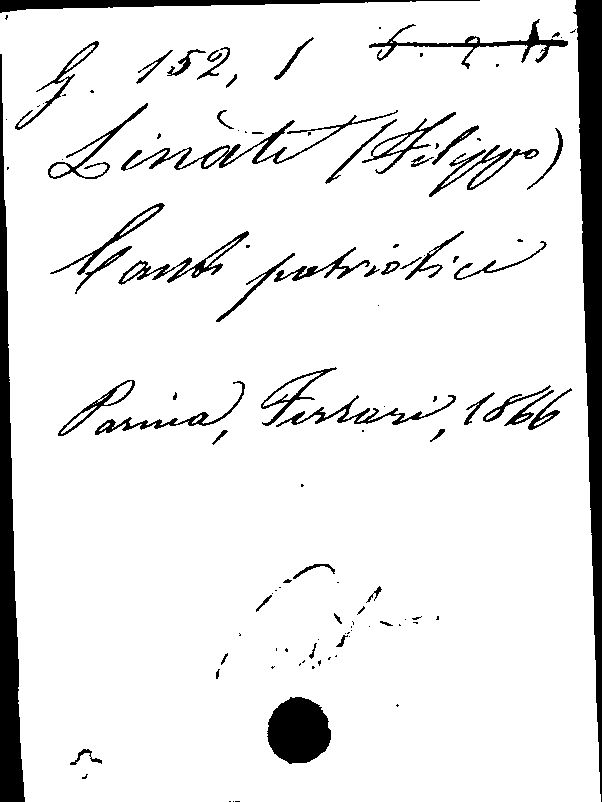 G. 152, 1 5. 2. 15
Linati (Filippo)
Canti patriotici
Parma, Ferrari, 1866